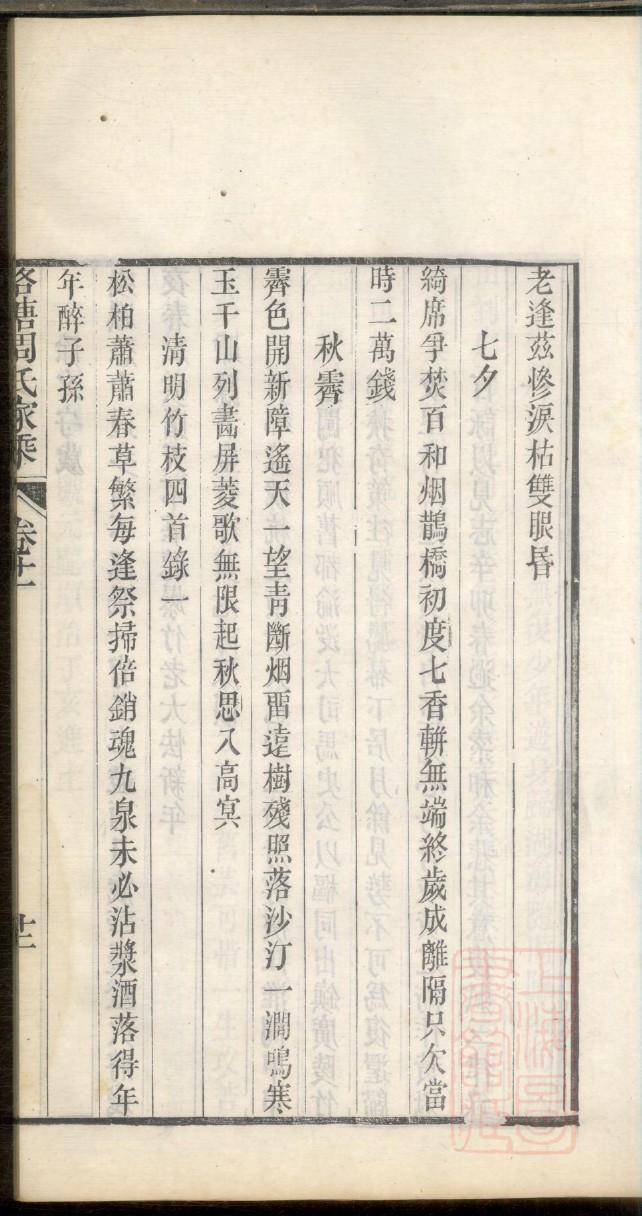 老逢茲慘淚枯雙眼昏
七夕
綺席爭焚百和烟鵲橋初度七香軿無端終歲成離隔只欠當
時二萬錢
秋霽
霽色開新障遙天一望青斷烟畱遠樹殘照落沙汀一澗鳴寒
玉千山列畵屏菱歌無限起秋思入高冥
清明竹枝四首錄一
松柏蕭蕭春草繁每逢祭掃倍銷魂九泉未必沾漿酒落得年
年醉子孫
周氏家乘 卷十一 廿二